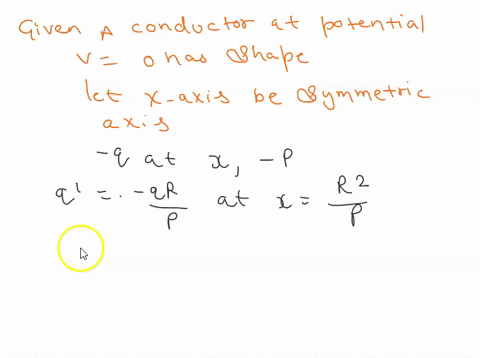 Given A conductor at potential
V = 0 has shape
let x-axis be symmetric
axis
-q at x, -P
q' = . -qR/P at x = R2/P